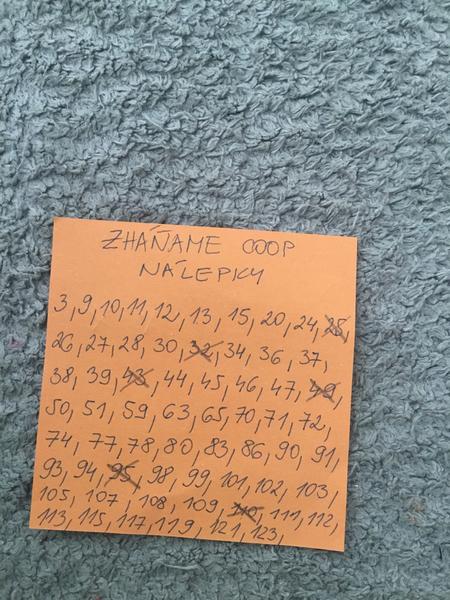 ZHÁŇAME COOP
NÁLEPKY
3, 9, 10, 11, 12, 13, 15, 20, 24, 25,
26, 27, 28, 30, 32, 34, 36, 37,
38, 39, 43, 44, 45, 46, 47, 49,
50, 51, 59, 63, 65, 70, 71, 72,
74, 77, 78, 80, 83, 86, 90, 91,
93, 94, 95, 98, 99, 101, 102, 103,
105, 107, 108, 109, 110, 111, 112,
113, 115, 117, 119, 121, 123,